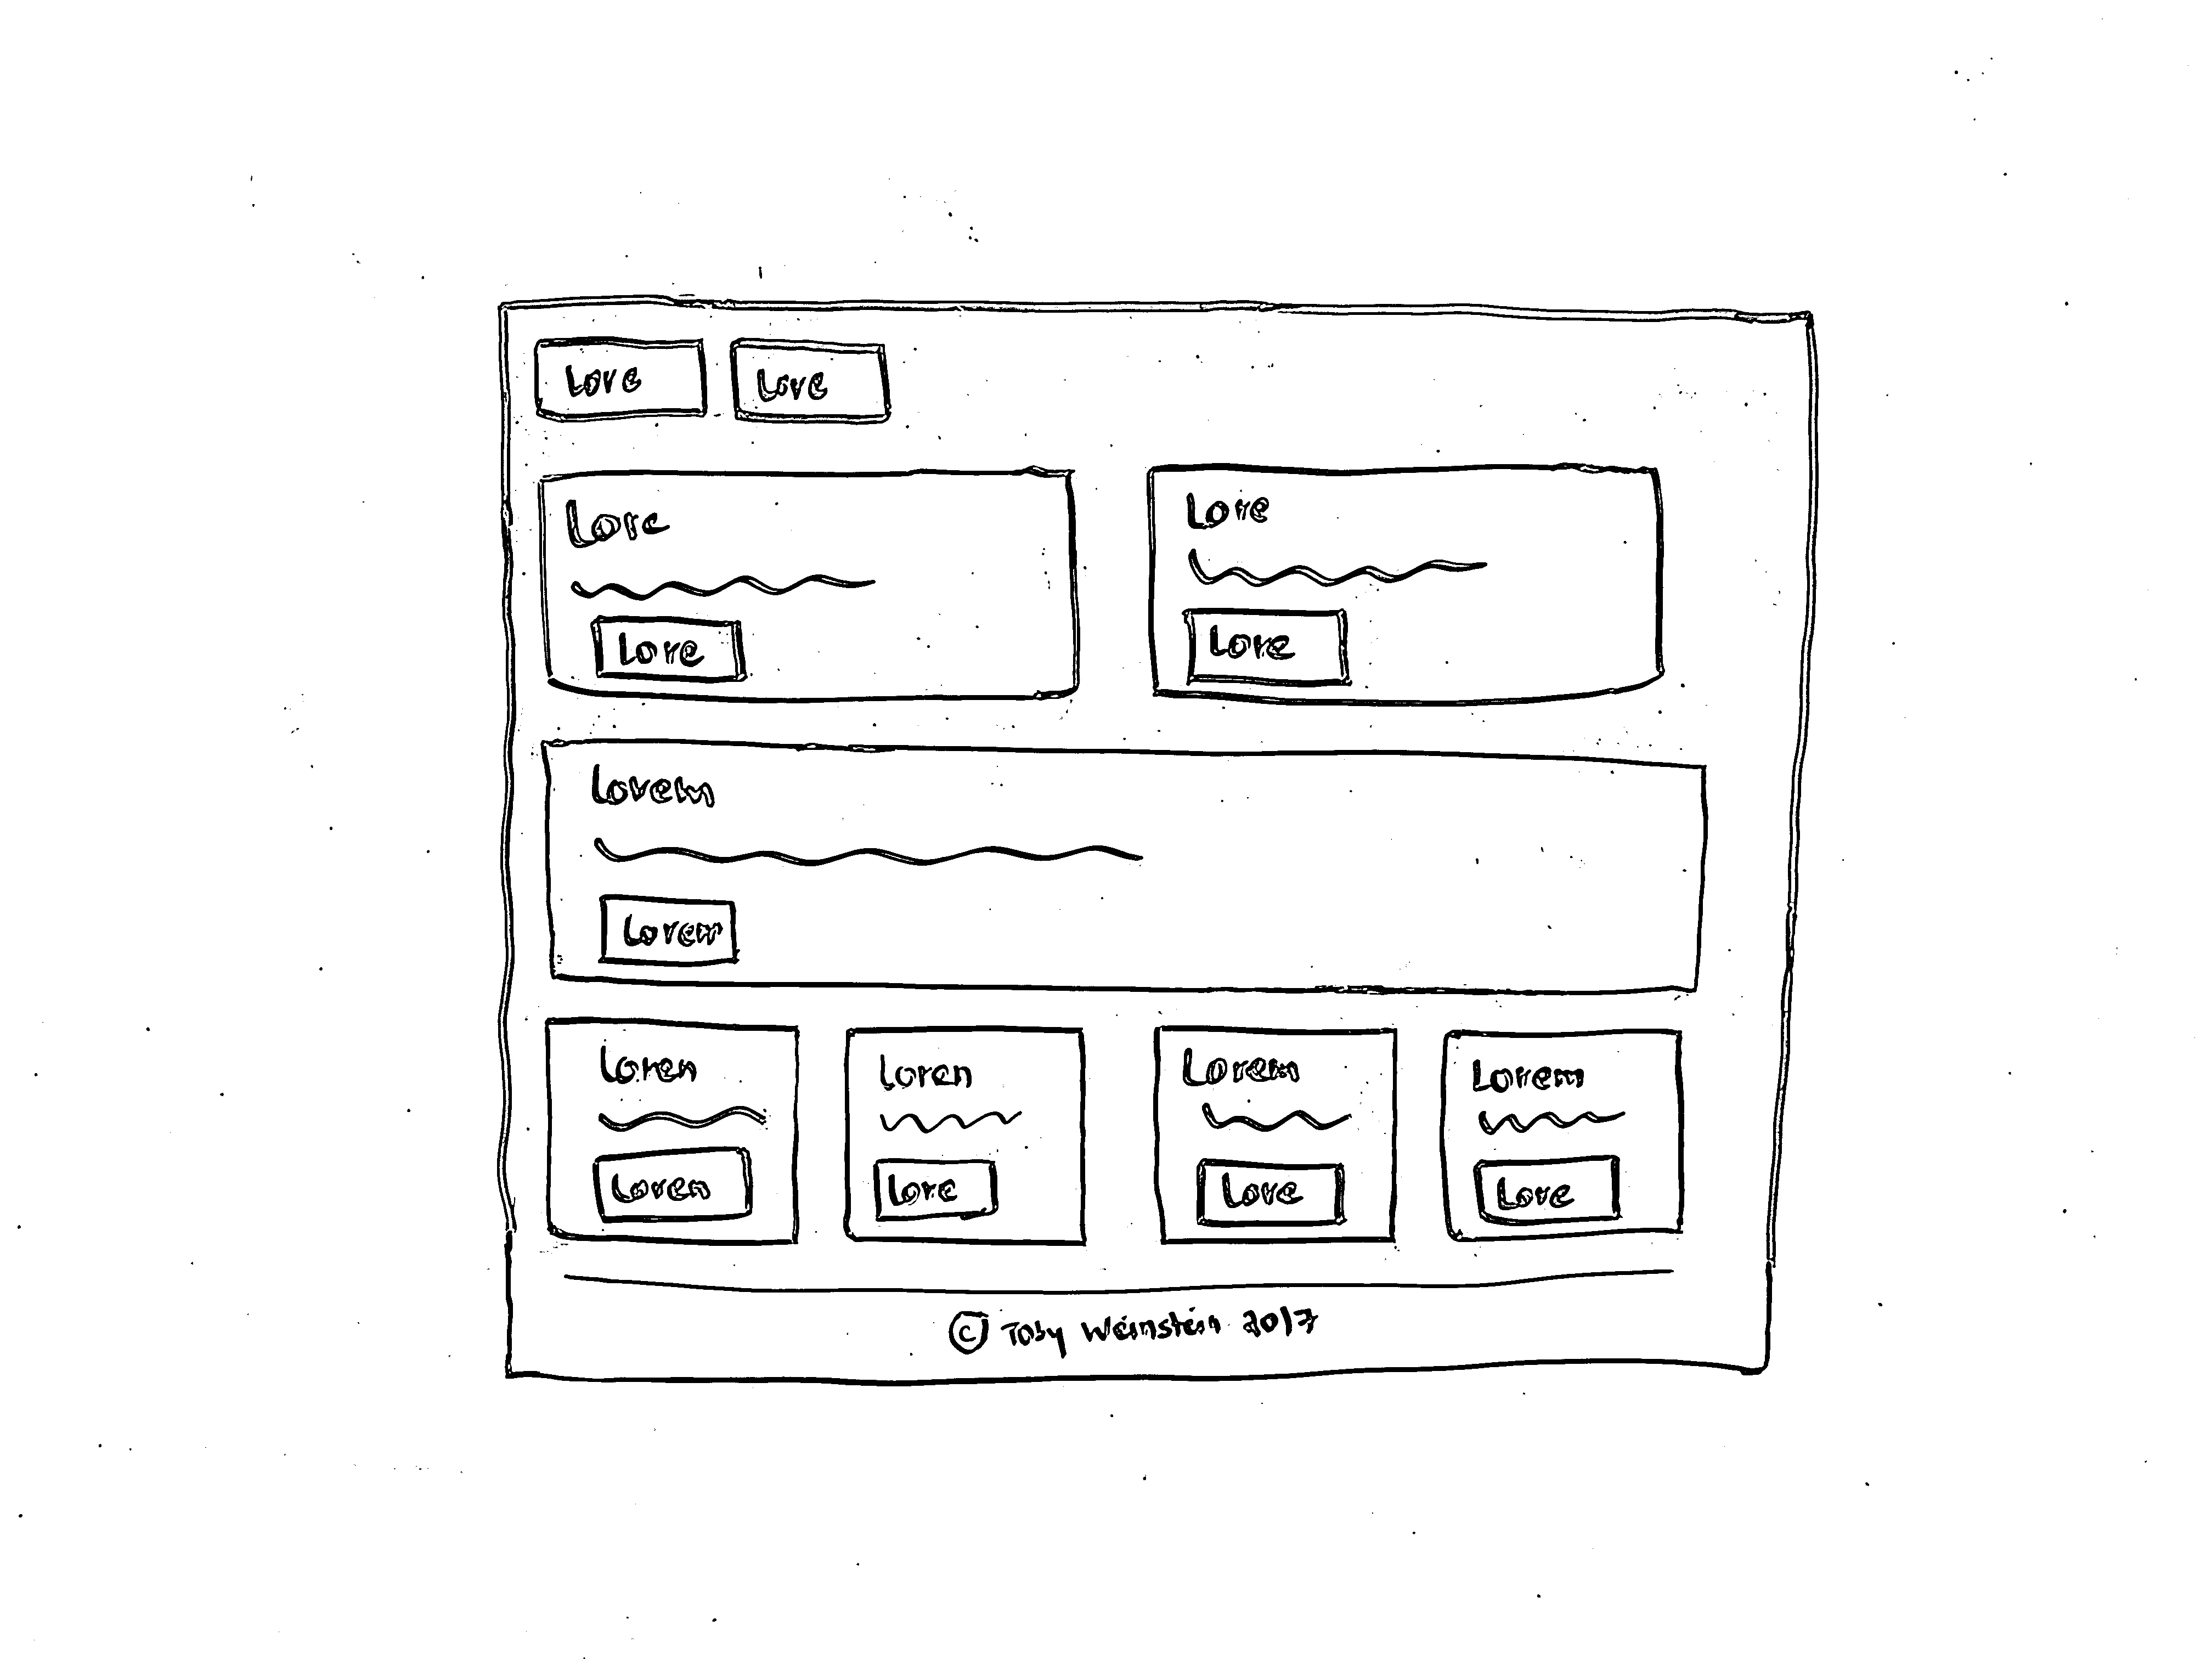 Lore Lore
Lore
Lore
Lore
Lore
Lorem
Lorem
Loren
Loren
Loren
Lore
Lorem
Lore
Lorem
Lore
© Toby Weinstein 2017